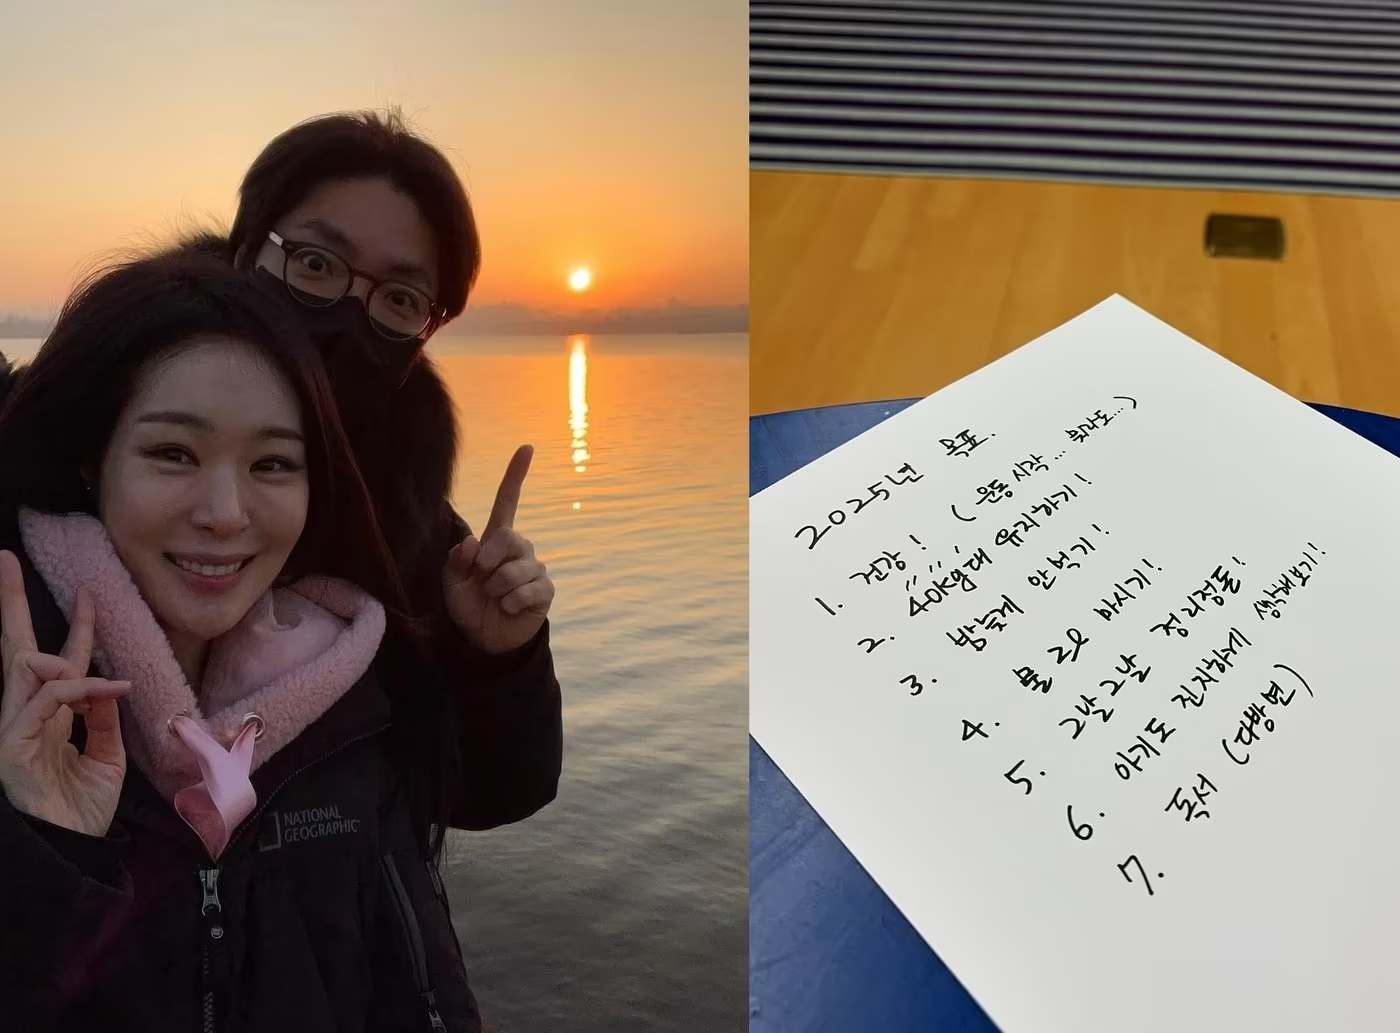 NATIONAL
GEOGRAPHIC
2025년 목표.
1. 건강! (운동 시작... 뭐라도...)
2. 40kg대 유지하기!
3. 밤늦게 안먹기!
4. 물 2l 마시기!
5. 그날그날 정리정돈!
6. 아기도 진지하게 생각해보기!
7. 독서 (다방면)